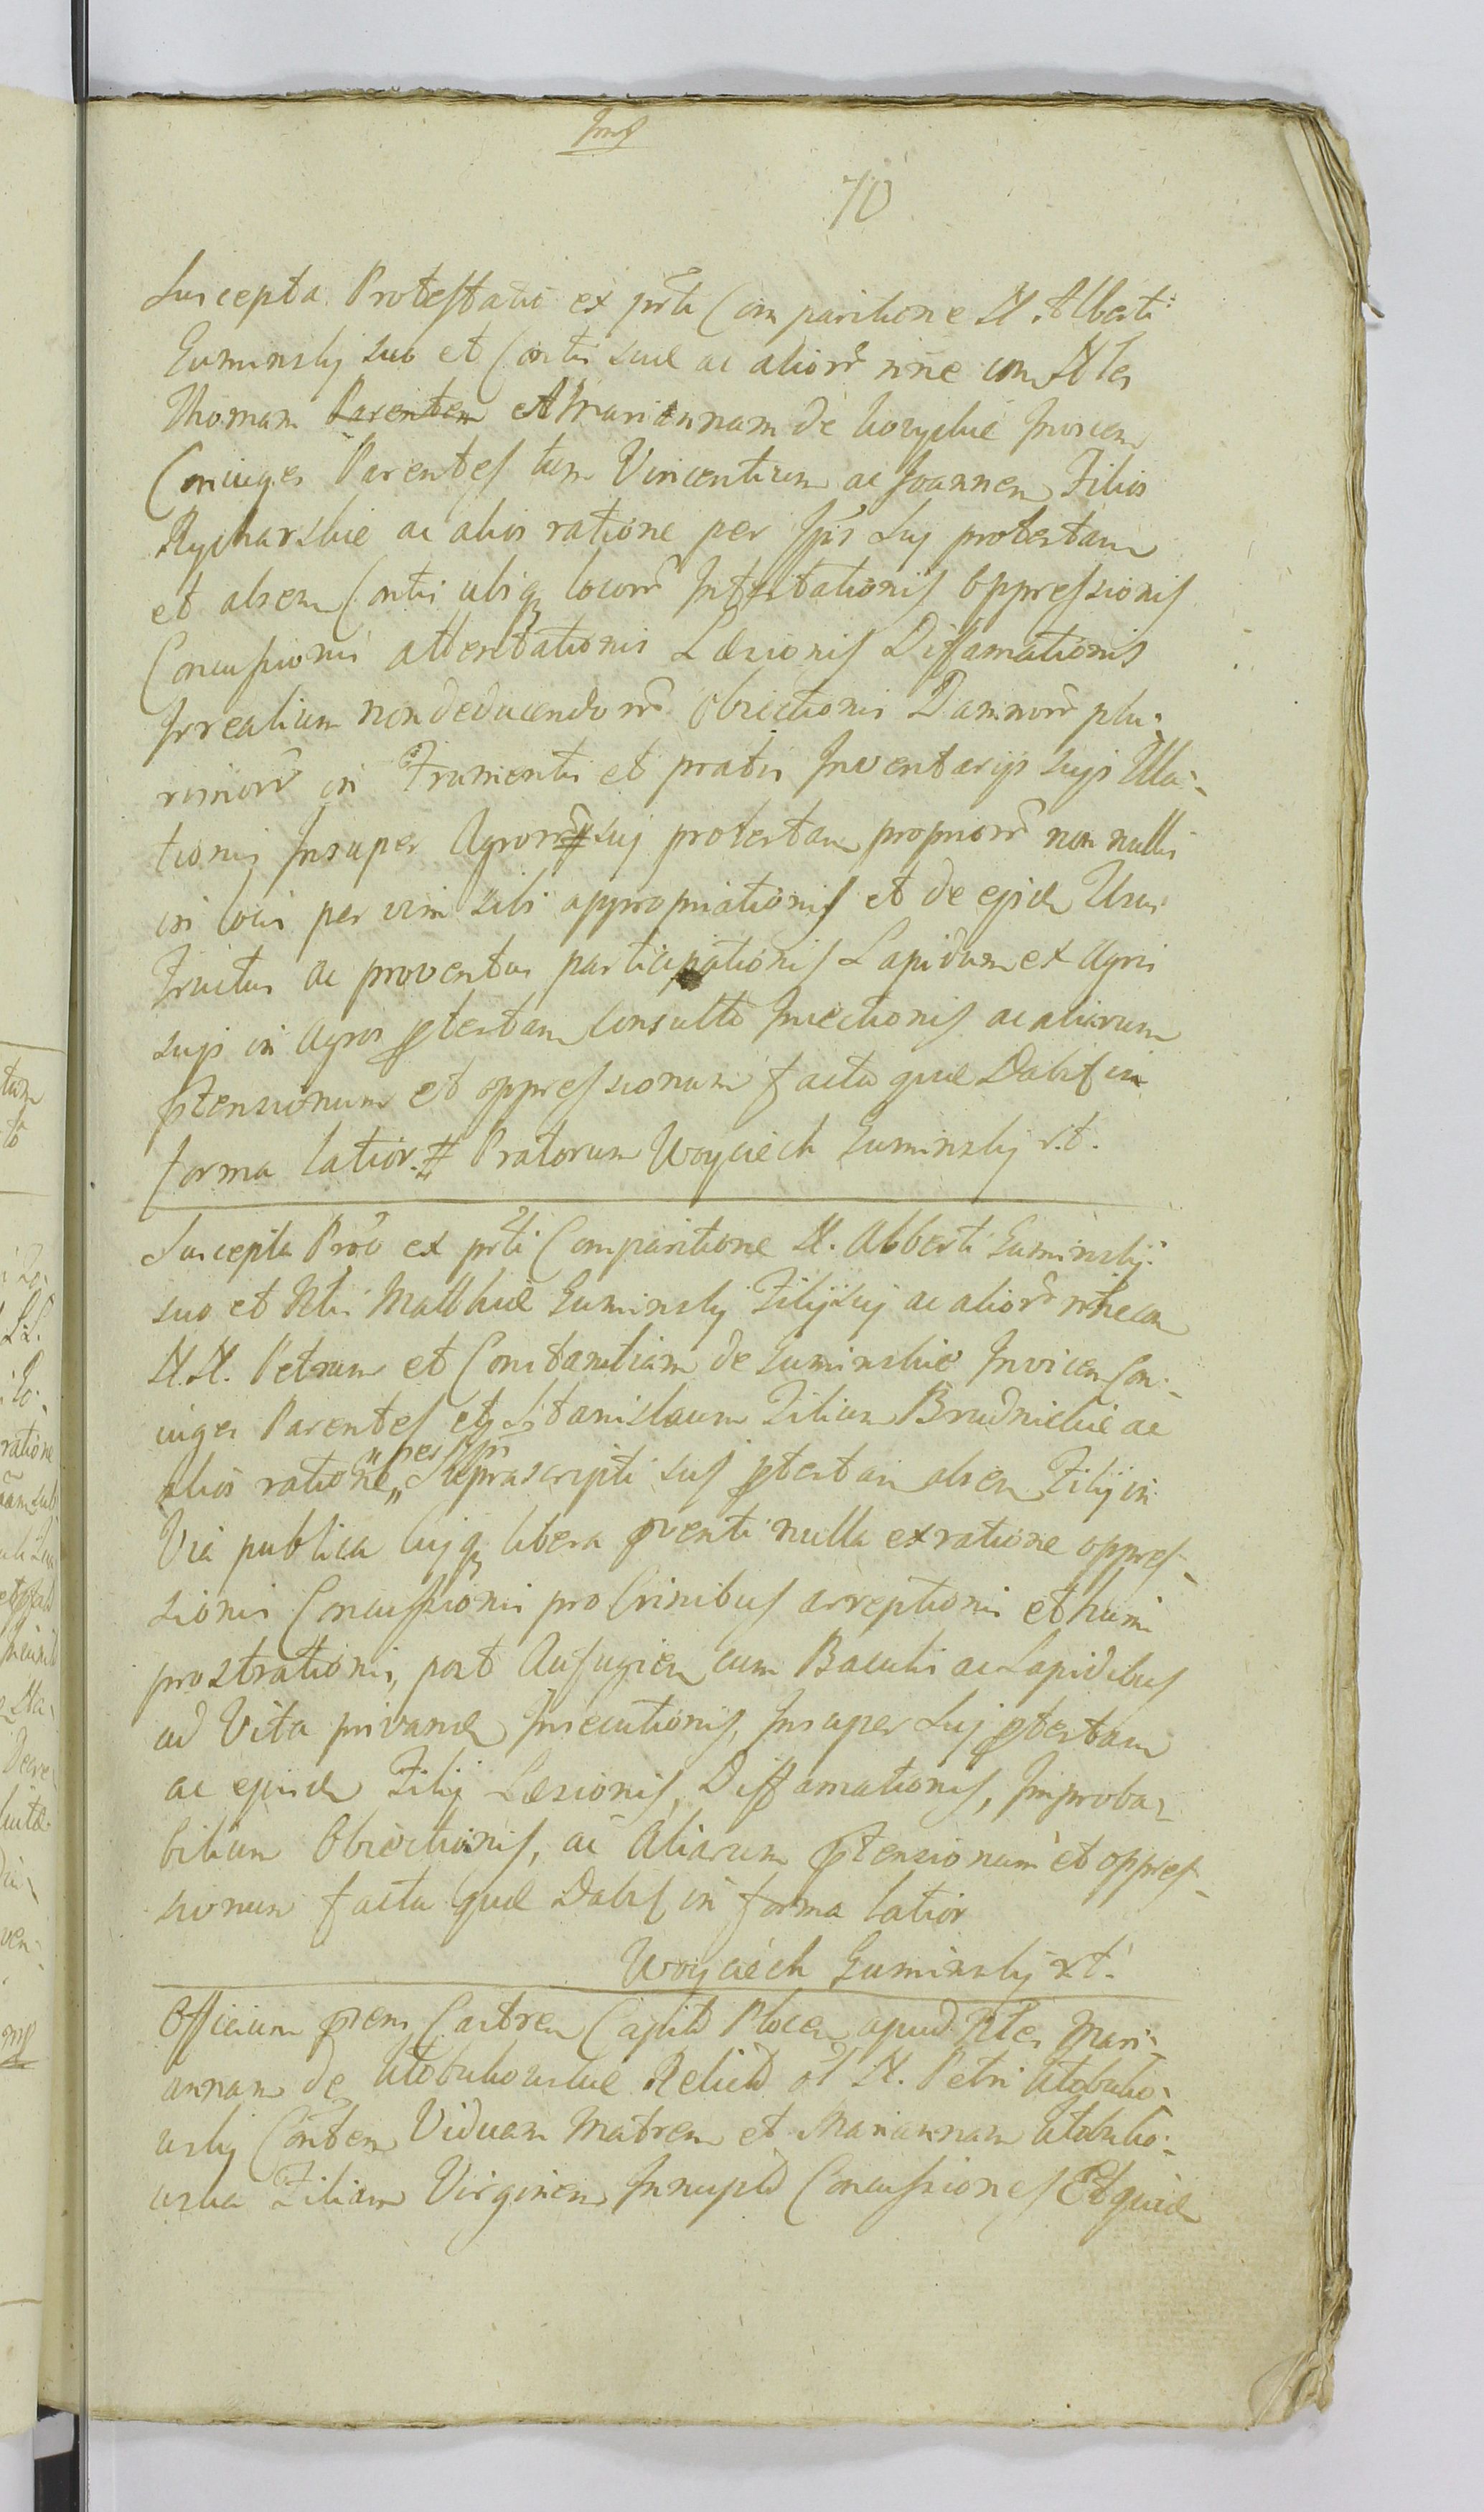 70
Suscepta Protestatio ex prti Comparitione N. Alberti
Guminskij suo et Contis suæ ac aliorr nne con Nles
Thomam Parentem et Mariannam de invicem
Coniuges Parentes tum Vincentium ac Joannem Filios
Rycharskie ac alios ratione per Ips Suj protestam
et absen Contis ubiq locorr Oppressionis
Concussionis attentationis Læsionis Diffamationis
Irrealium non deducendorr Obiectionis Damnorr plu-
rimorr in Frumentis et pratis Inventarijs sujs Illa-
tionis Insuper Agrorr # suj protestam propriorr non nullis
in locis per vim sibi appropriationis et de ejsd Usus
Fructus ac proventus participationis Lapidum ex Agris
sujs in Agros ptestam consulto Iniectionis ac aliarum
ptensionum et oppressionum facta quæ Dabit in
forma latior. # Pratorum Woyciech Guminskij rt.
Suscepta Prõ ex prti Comparitione N. Alberti Guminskij
suo et Nli Matthiæ Guminskij Filij suj ac aliorr nne con
N.N. Petrum et Constantiam de Guminskie Invicem Con-
iuges Parentes et Stanislaum Filium Brudnickie ac
alios ratione „ per Ips „ Supra scripti suj ptestan absen Filij in
Via publica Cujq libera nulla ex ratione oppres-
sionis Concussionis pro Crinibus arreptionis et humi
prostrationis, post Aufugien cum Baculis ac Lapidibus
ad Vita privand Insecutionis, Insuper Suj ptestam
ac ejusd Filij Læsionis, Diffamationis, Improba-
bilium Obiectionis, ac Aliarum ptensionum et oppres-
sionum facta quæ Dabit in forma latior
Woyciech Guminskij rt.
Officium prens Castren Capitl Plocen apud Nles Mari-
annam de Relict ol N. Petri
Conten Viduam Matrem et Mariannam
Filiam Virginem Innupt Concussiones Et quid